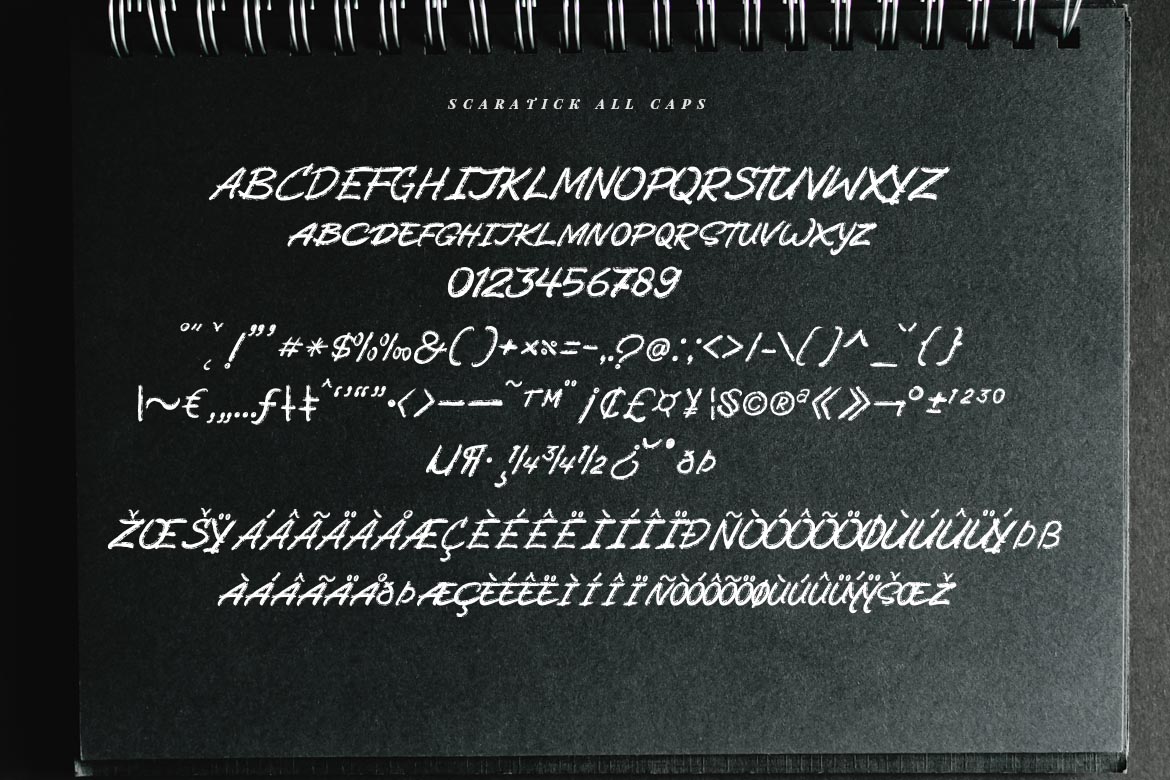 SCARATICK ALL CAPS
ABCDEFGHIJKLMNOPQRSTUVWXYZ
ABCDEFGHIJKLMNOPQRSTUVWXYZ
0123456789
°"ˇ˛!"''#*$%‰&()+×÷=-,.?@:;<>/-\()^_˘{}
|~€‚„…ƒ†‡ˆ‘’“”•‹›–—˜™¨¡¢£¤¥¦§©®ª«»¬°±¹²³⁰
µ¶·¸¼¾½¿˘˙ðþ
ŽŒŠŸÁÂÃÄÀÅÆÇÈÉÊËÌÍÎÏÐÑÒÓÔÕÖØÙÚÛÜÝÞß
ÀÁÂÃÄÅðþÆÇÈÉÊËÌÍÎÏÑÒÓÔÕÖØÙÚÛÜÝŸŠŒŽ